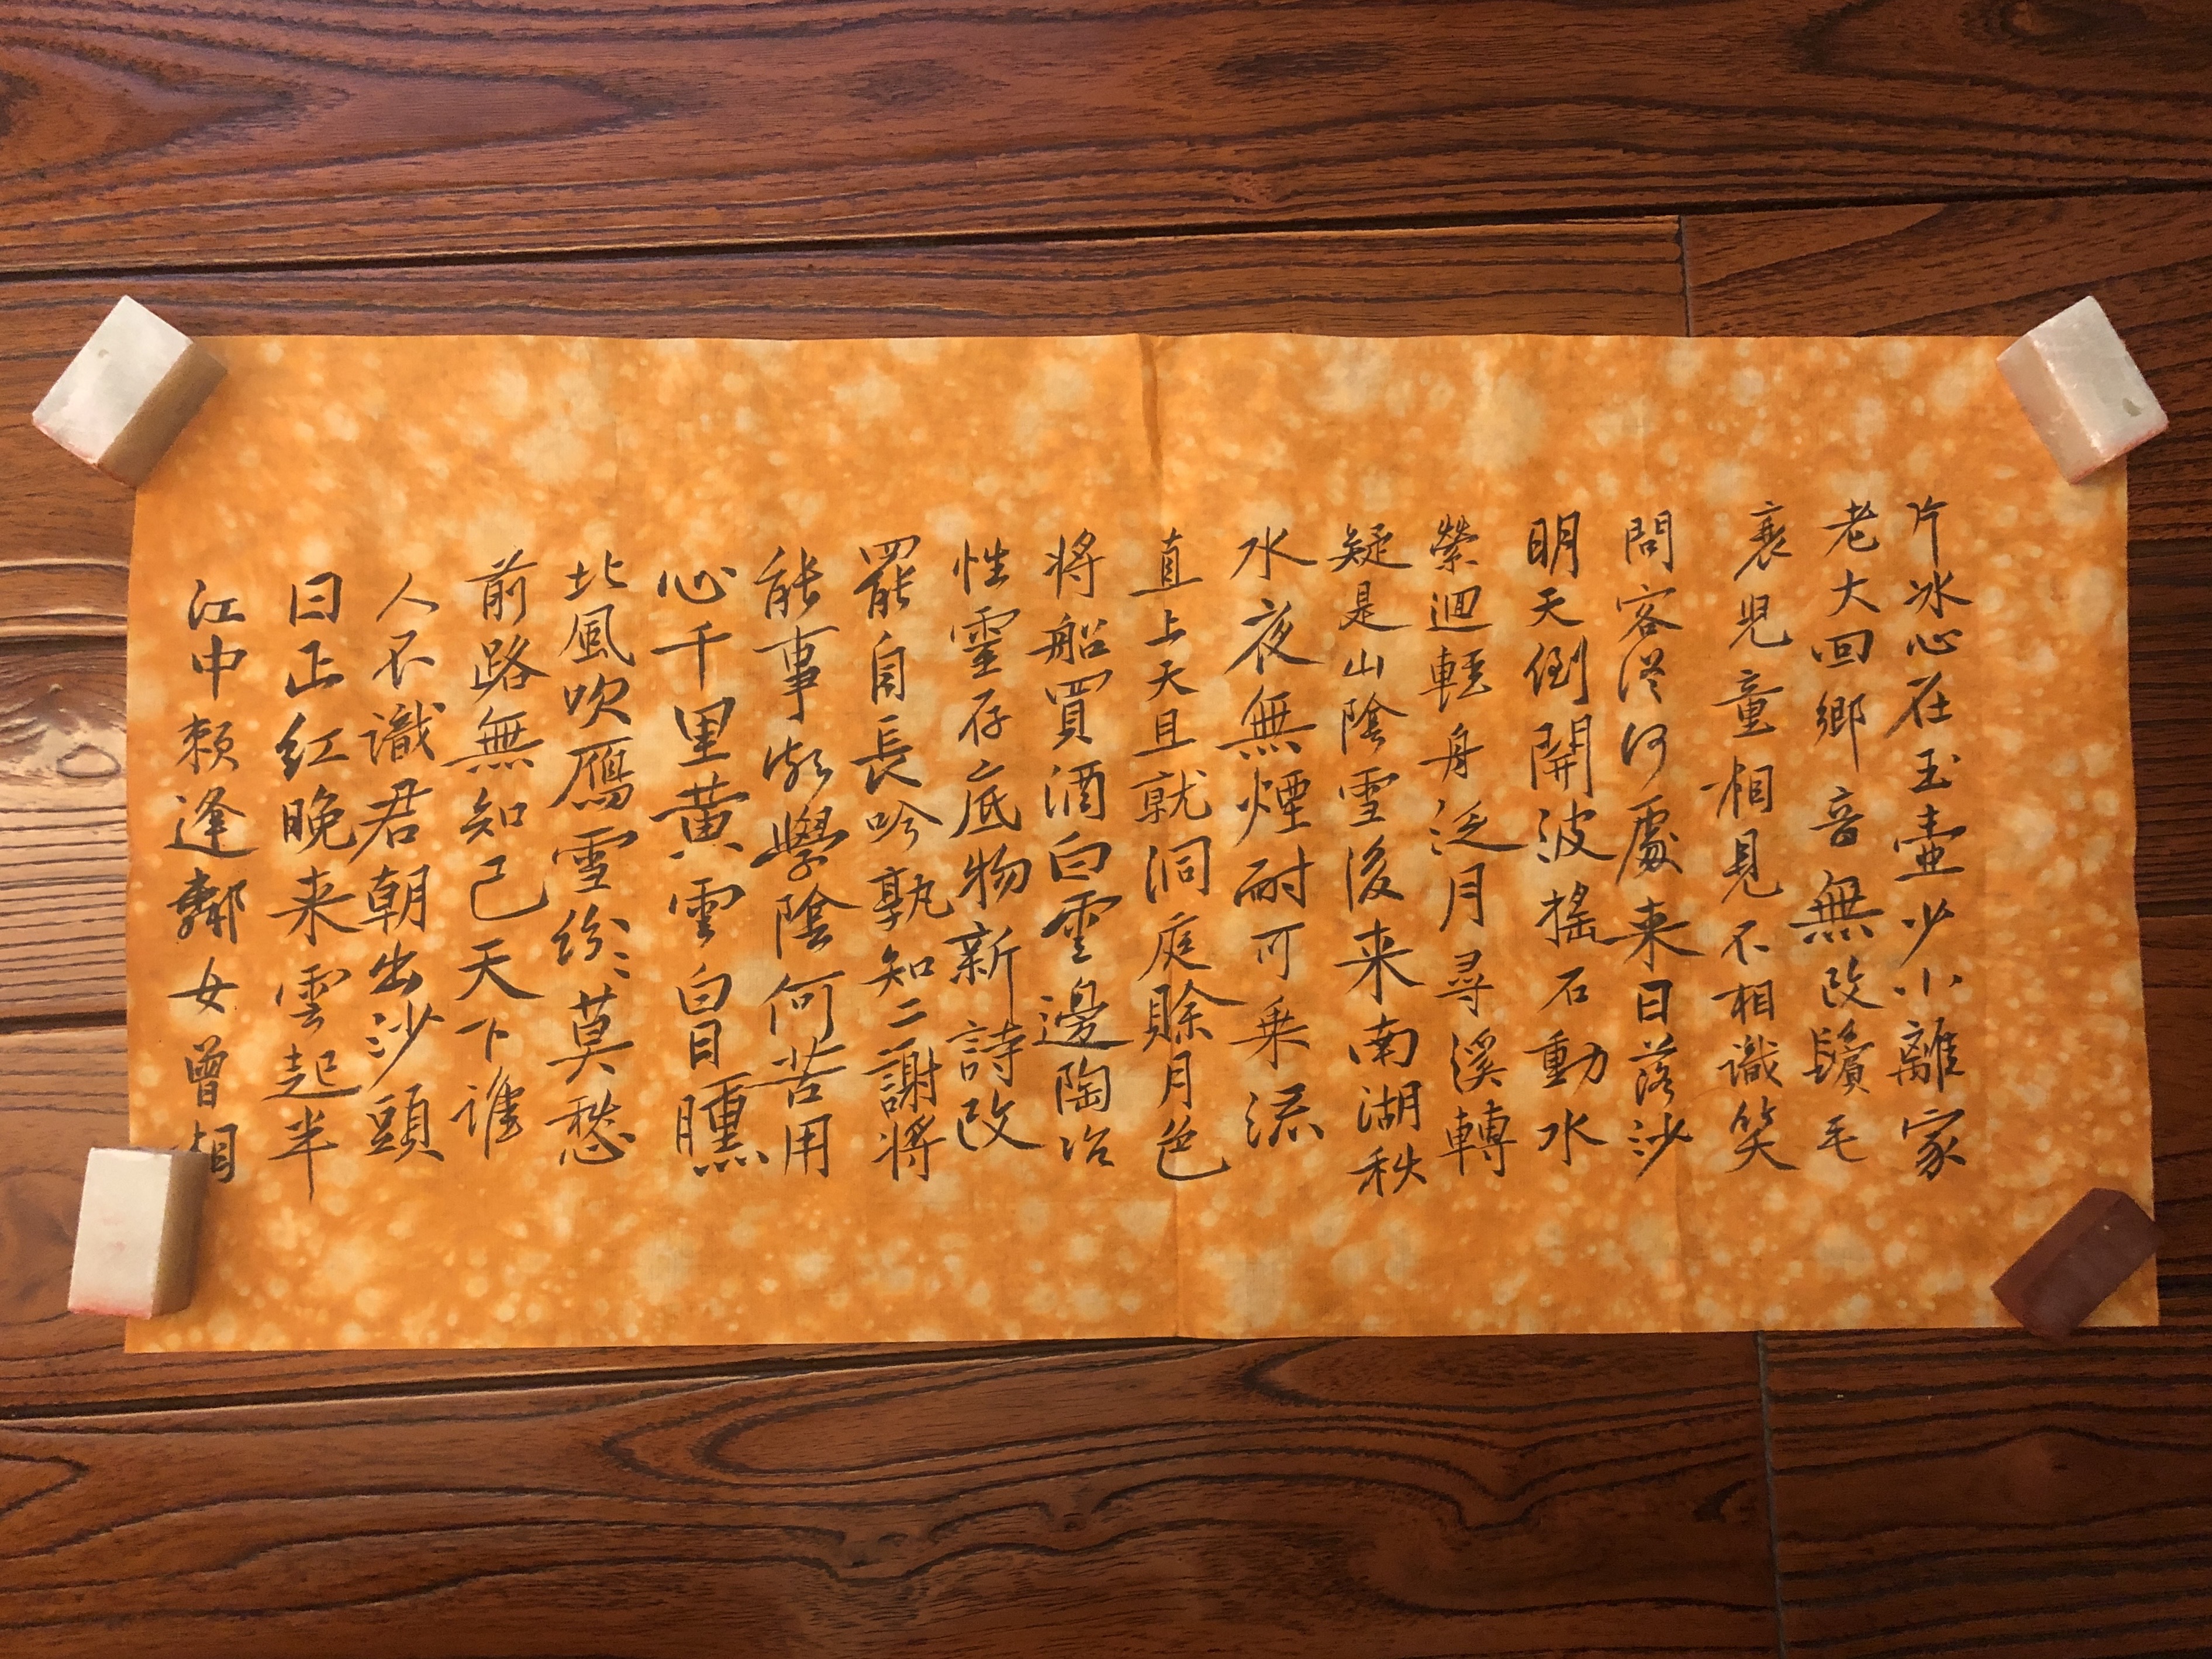 片冰心在玉壺少小離家
老大回鄉音無改鬢毛
衰兒童相見不相識笑
問客從何處来日落沙
明天倒開波搖石動水
縈迴輕舟泛月尋溪轉
疑是山陰雪後来南湖秋
水夜無煙耐可乗流
直上天且就洞庭賒月色
將船買酒白雲邊陶冶
性靈存底物新詩改
罷自長吟孰知二謝將
能事頗學陰何苦用
心千里黃雲白日曛
北風吹雁雪紛〻莫愁
前路無知己天下誰
人不識君朝出沙頭
日正紅晚来雲起半
江中賴逢鄰女曾相